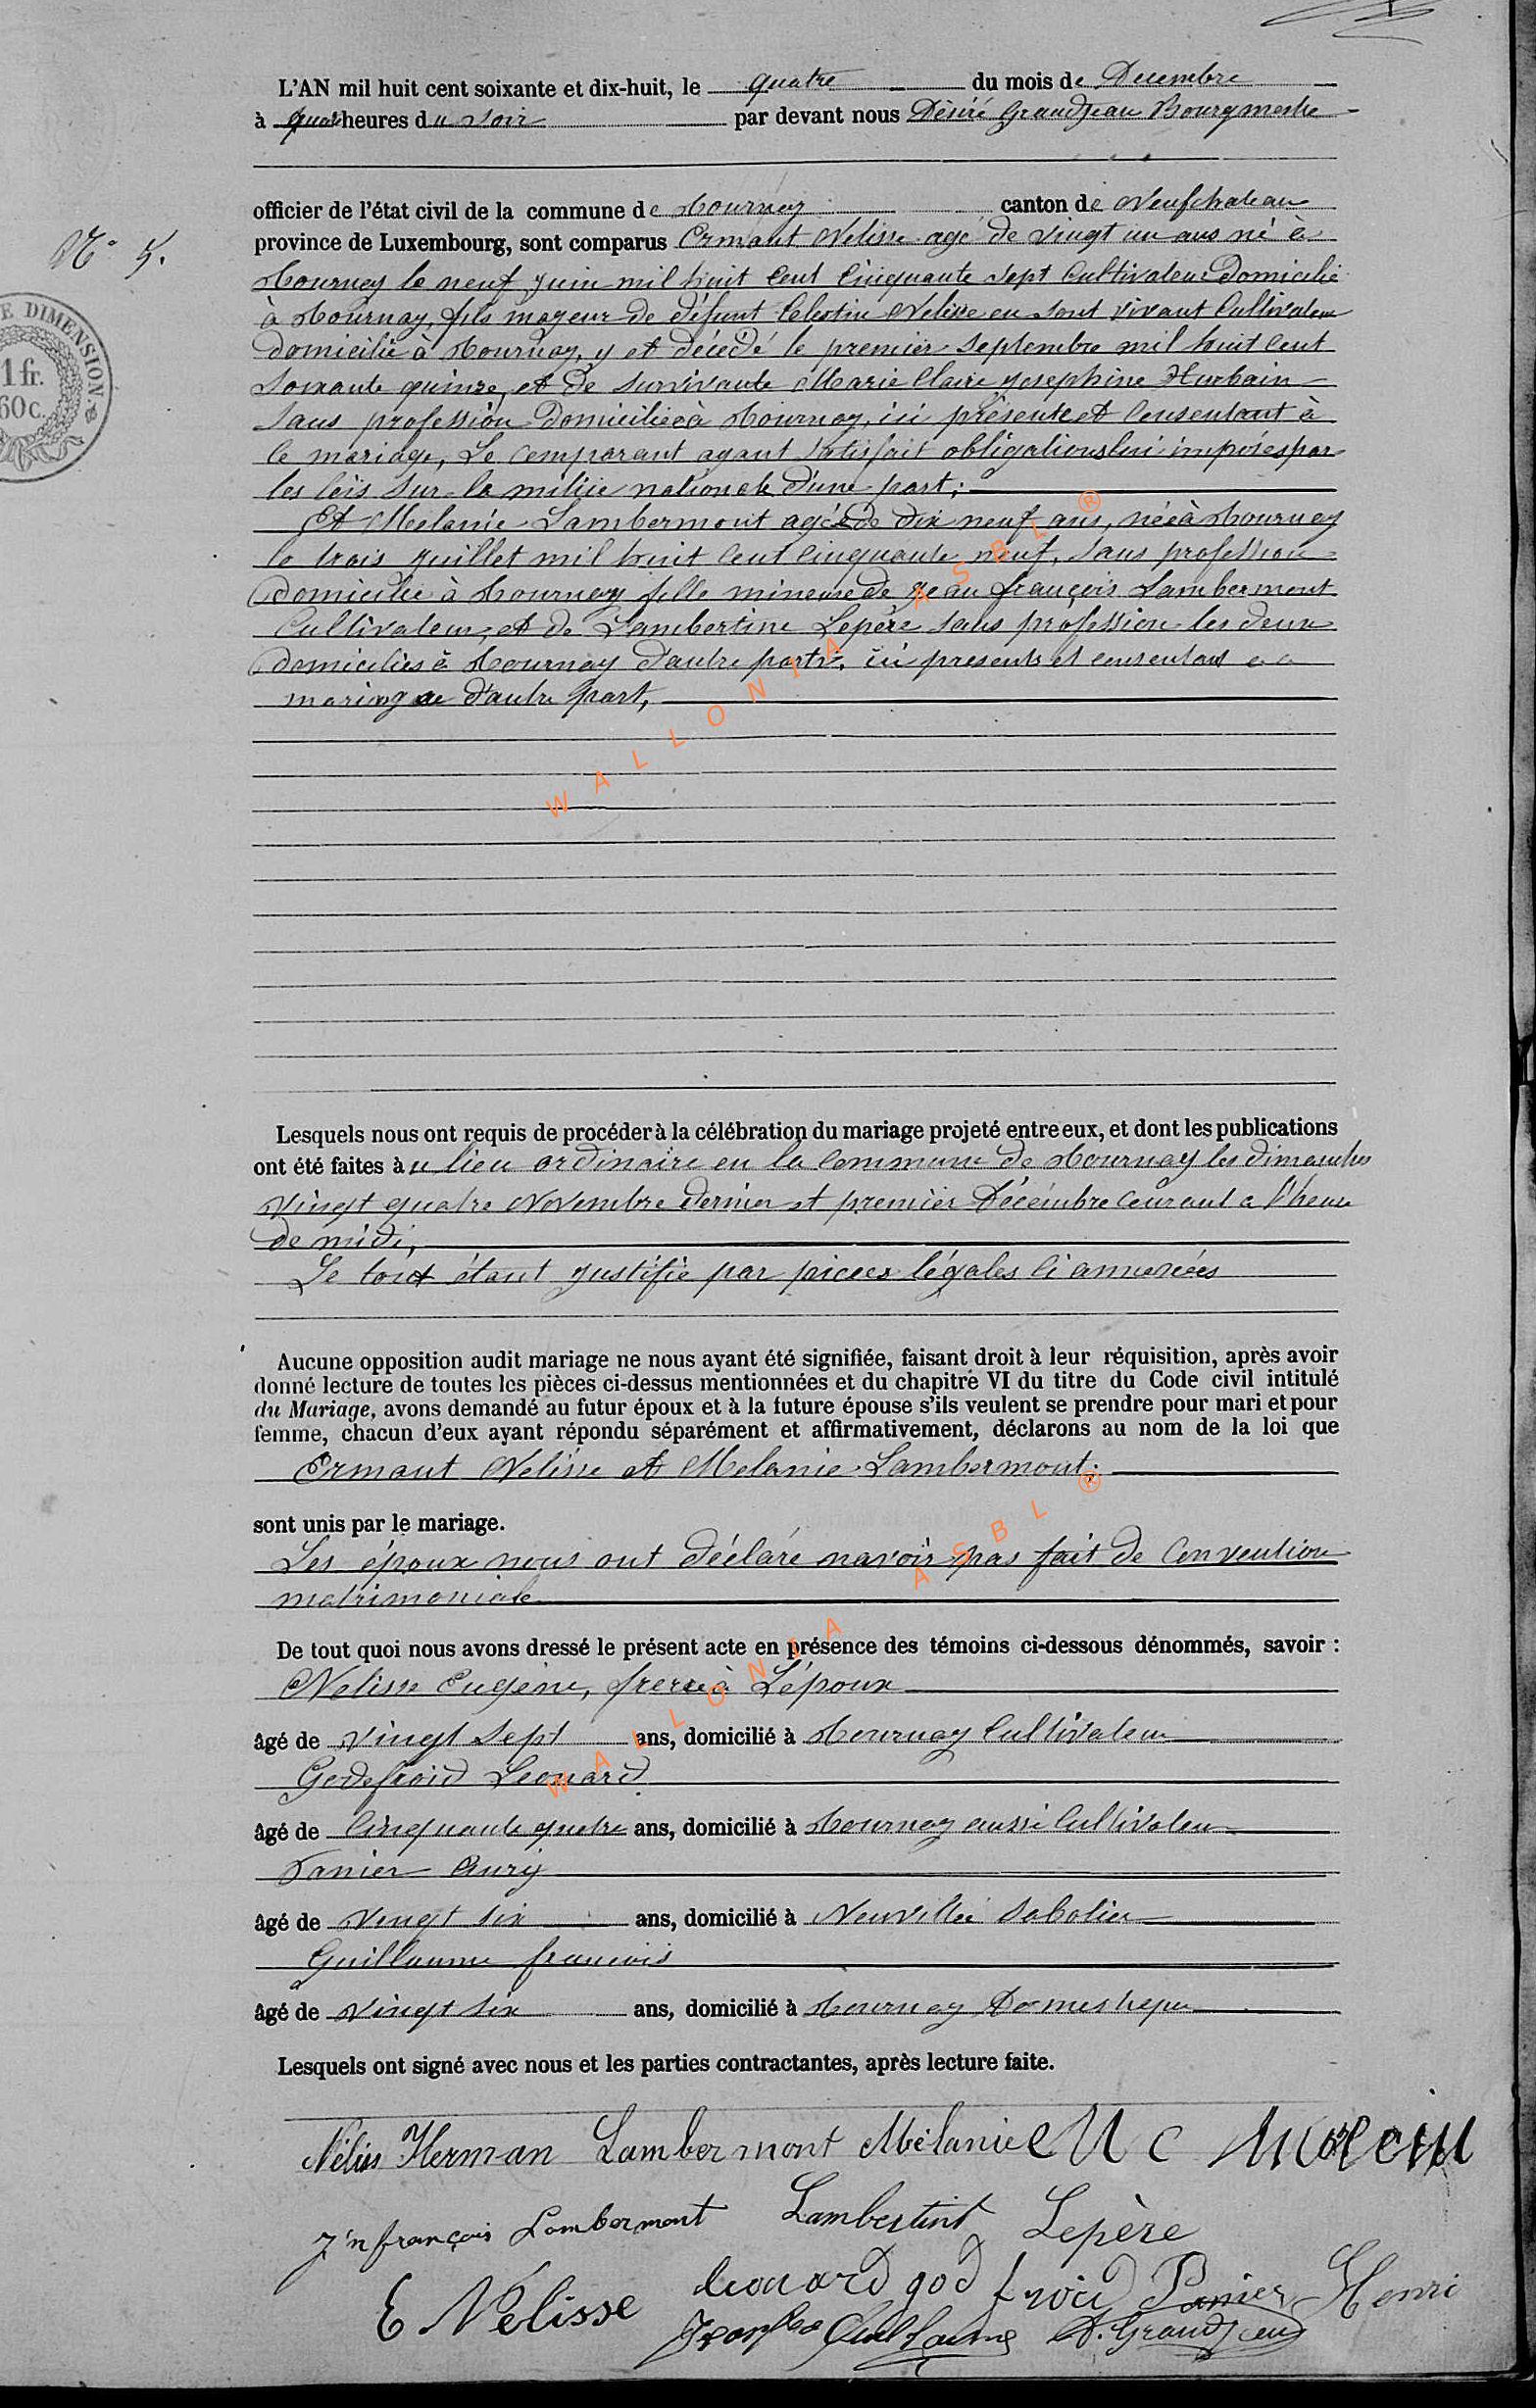 L'AN mil huit cent soixante et dix-huit, le quatre du mois de Decembre
à quatre heures du soir par devant nous Désiré Grandjean Bourgmestre
officier de l'état civil de la commune de Tournay canton de Neufchateau
N° 5.
province de Luxembourg, sont comparus Ermant Nelisse agé de vingt un ans né à
Tournay le neuf Juin mil huit cent cinquante sept Cultivateur Domicilié
à Tournay, fils majeur de défunt Celestin Nelisse en sont vivant Cultivateur
domicilié à Tournay, y et décédé le premier Septembre mil huit cent
soixante quinze, et de survivante Marie Claire Josephine Hurbain
sans profession Domiciliée à Tournay, ici présente et consentant à
ce mariage, Le comparant ayant satisfait obligations lui imposés par
les lois sur la milice nationale d'une part;
Et Melanie Lambermont agée de dix neuf ans, née à Tournay
le trois Juillet mil huit cent cinquante neuf, sans profession
domiciliée à Tournay fille mineure de Jean françois Lambermont
Cultivateur, et de Lambertine Lepère sans profession les deux
domiciliés à Tournay d'autre part, ici presents et consentant
mariage d'autre part,
Lesquels nous ont requis de procéder à la célébration du mariage projeté entre eux, et dont les publications
ont été faites au lieu ordinaire en la commune de Tournay les dimanches
vingt quatre Novembre dernier et premier Décembre courant a l'heure
de midi,
Le tout étant justifié par pieces légales ci annexées
Aucune opposition audit mariage ne nous ayant été signifiée, faisant droit à leur réquisition, après avoir
donné lecture de toutes les pièces ci-dessus mentionnées et du chapitre VI du titre du Code civil intitulé
du Mariage, avons demandé au futur époux et à la future épouse s'ils veulent se prendre pour mari et pour
femme, chacun d'eux ayant répondu séparément et affirmativement, déclarons au nom de la loi que
Ermant Nelisse et Melanie Lambermont;
sont unis par le mariage.
Les époux nous ont déclaré navoir pas fait de Convention
matrimoniale
De tout quoi nous avons dressé le présent acte en présence des témoins ci-dessous dénommés, savoir :
Nelisse Eugène, frere à L'époux
âgé de vingt sept ans, domicilié à Tournay Cultivateur
Godefroid Leonard
âgé de Cinquante quatre ans, domicilié à Tournay aussi Cultivateur
Panier Anry
âgé de vingt six ans, domicilié à Neuvillée Sabotier
Guillaume francois
âgé de vingt six ans, domicilié à Tournay Domestique
Lesquels ont signé avec nous et les parties contractantes, après lecture faite.
Néliss Herman Lambermont Mélanie M C
J'n françois Lambermont Lambertint Lepère
E Nélisse Leonard god froid Panier Henri
Guillaume D. Grandjean
E DIMENSION
1 fr.
60 c.
WALLONIA ASBL ®
WALLONIA ASBL ®